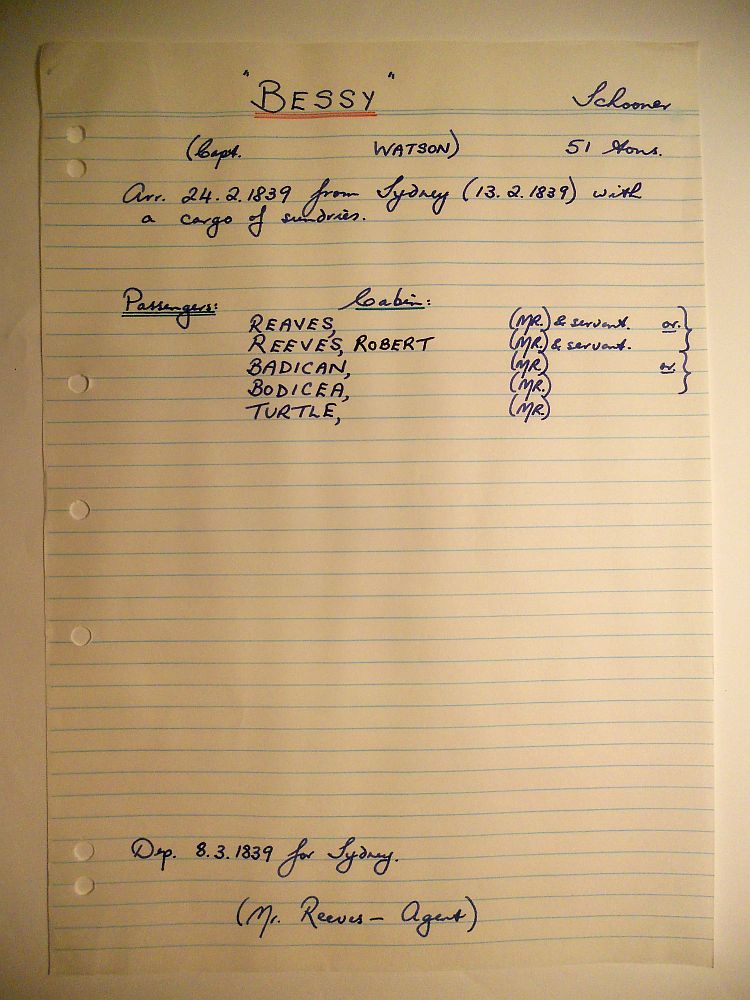 "BESSY" Schooner
(Capt. WATSON) 51 tons.
Arr. 24.2.1839 from Sydney (13.2.1839) with
a cargo of sundries.
Passengers: Cabin:
REAVES, (MR.) & servant. or.}
REEVES, ROBERT (MR.) & servant.
BADICAN, (MR) or.}
BODICEA, (MR.)
TURTLE, (MR)
Dep. 8.3.1839 for Sydney.
(Mr. Reeves - Agent)